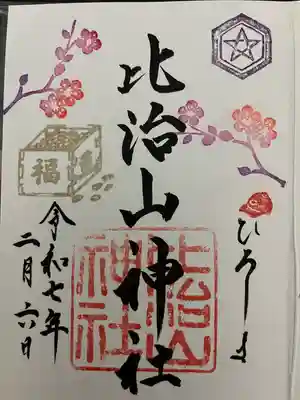 比治山神社
ひろしま
比治山
神社
福
令和七年
二月六日